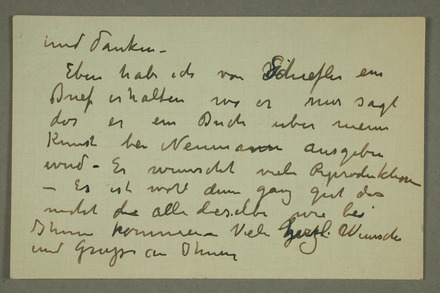 und danken –
Eben hab ich von Schiefler ein
Brief erhalten wo er mir sagt
das er ein Buch uber meine
Kunst bei Neumann ausgeben
wird – Er wunscht viele Reproduktion
– Es ist wohl dann ganz gut das
nicht die alle dieselbe wie bei
Ihnen kommen – Viele herzl. Wunsche
und Grusse an Ihnen